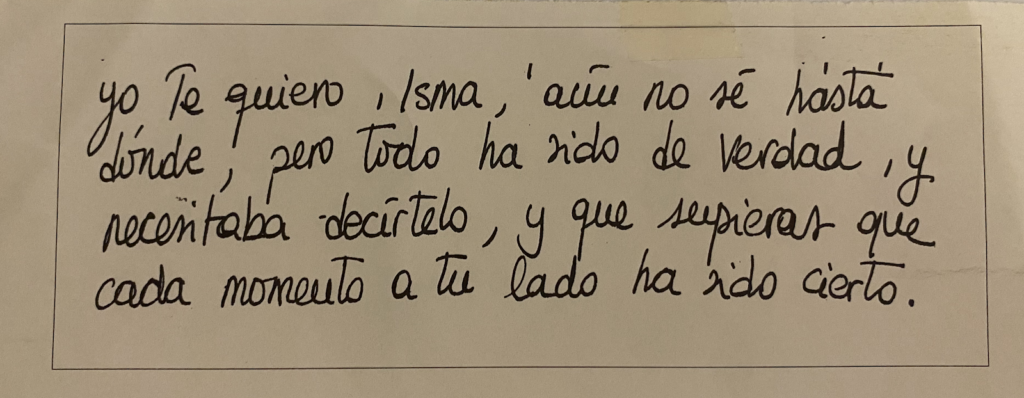 yo Te quiero, Isma, aún no sé hasta
dónde, pero Todo ha sido de verdad, y
necesitaba decírtelo, y que supieras que
cada momento a tu lado ha sido cierto.